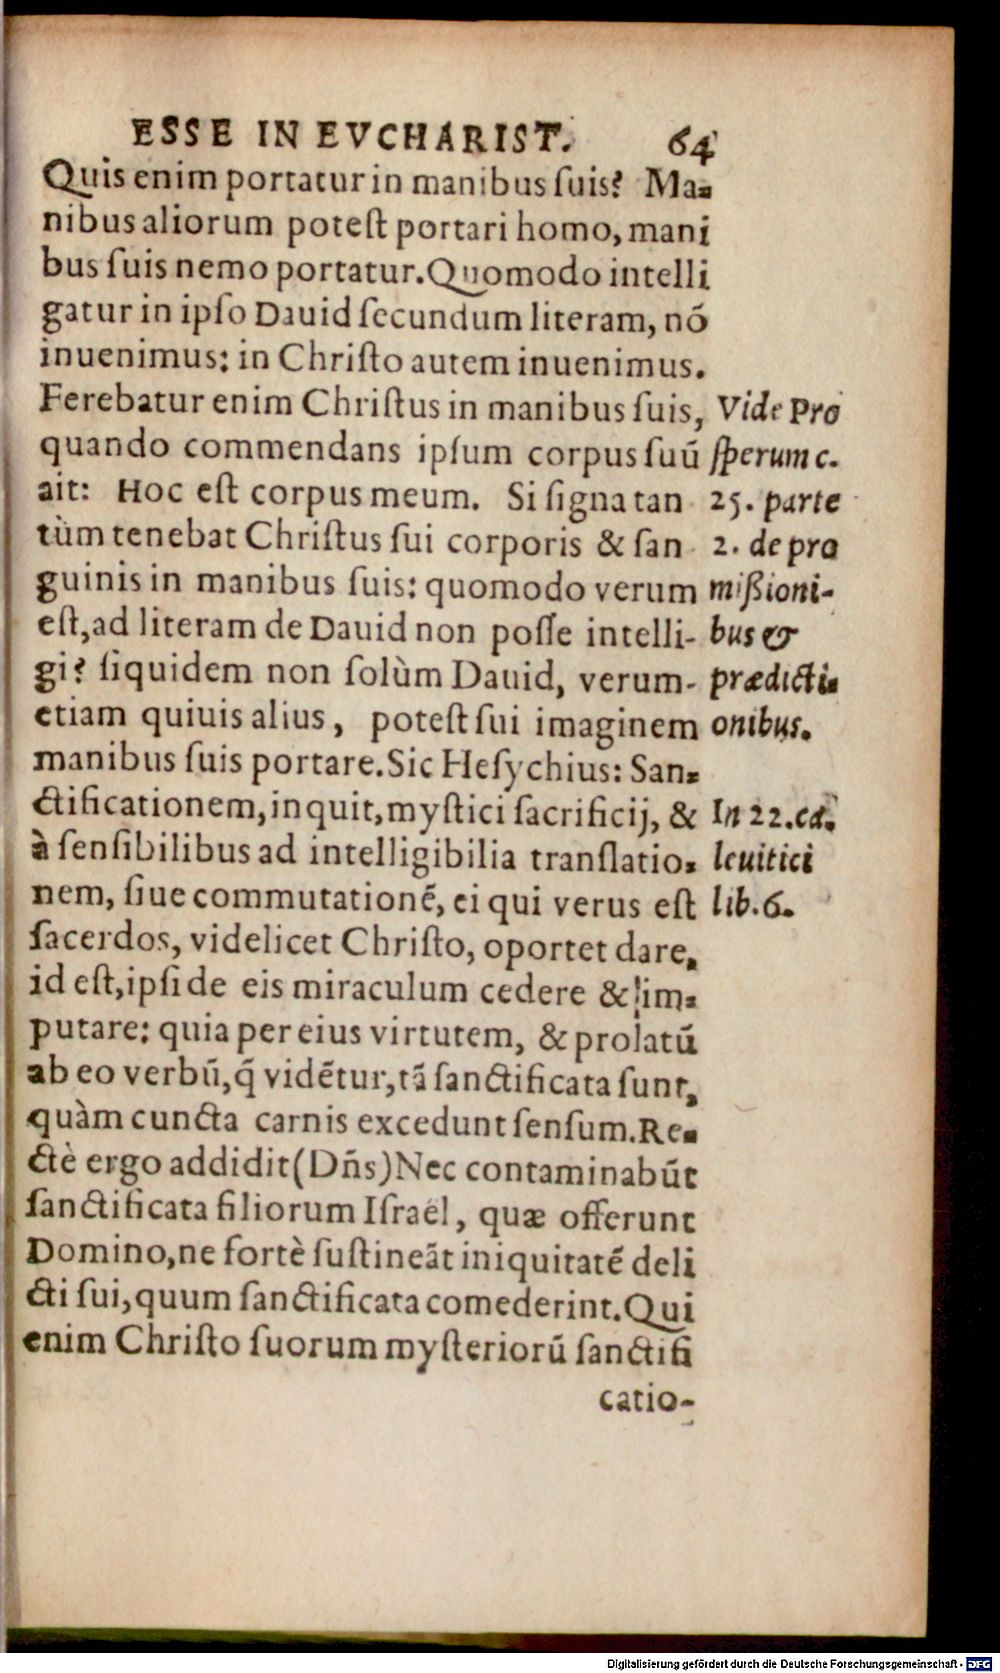 ESSE IN EVCHARIST. 64
Quis enim portatur in manibus ſuis? Ma-
nibus aliorum poteſt portari homo, mani
bus ſuis nemo portatur. Quomodo intelli
gatur in ipſo Dauid ſecundum literam, nõ
inuenimus: in Chriſto autem inuenimus.
Ferebatur enim Chriſtus in manibus ſuis,
quando commendans ipſum corpus ſuũ
ait: Hoc eſt corpus meum. Si ſigna tan
tùm tenebat Chriſtus ſui corporis & ſan
guinis in manibus ſuis: quomodo verum
eſt, ad literam de Dauid non poſſe intelli-
gi? ſiquidem non ſolùm Dauid, verum-
etiam quiuis alius, poteſt ſui imaginem
manibus ſuis portare. Sic Heſychius: San-
ctificationem, inquit, myſtici ſacrificij, &
à ſenſibilibus ad intelligibilia tranſlatio-
nem, ſiue commutationẽ, ei qui verus eſt
ſacerdos, videlicet Chriſto, oportet dare,
id eſt, ipſi de eis miraculum cedere & im-
putare: quia per eius virtutem, & prolatũ
ab eo verbũ, q̃ vidẽtur, tã ſanctificata ſunt,
quàm cuncta carnis excedunt ſenſum. Re-
ctè ergo addidit (Dñs) Nec contaminabũt
ſanctificata filiorum Iſraël, quæ offerunt
Domino, ne fortè ſuſtineãt iniquitatẽ deli
cti ſui, quum ſanctificata comederint. Qui
enim Chriſto ſuorum myſteriorũ ſanctifi
catio-
Vide Pro
ſperum c.
25. parte
2. de pro
mißioni-
bus &
prædicti-
onibus.
In 22. ca.
leuitici
lib. 6.
Digitalisierung gefördert durch die Deutsche Forschungsgemeinschaft - DFG